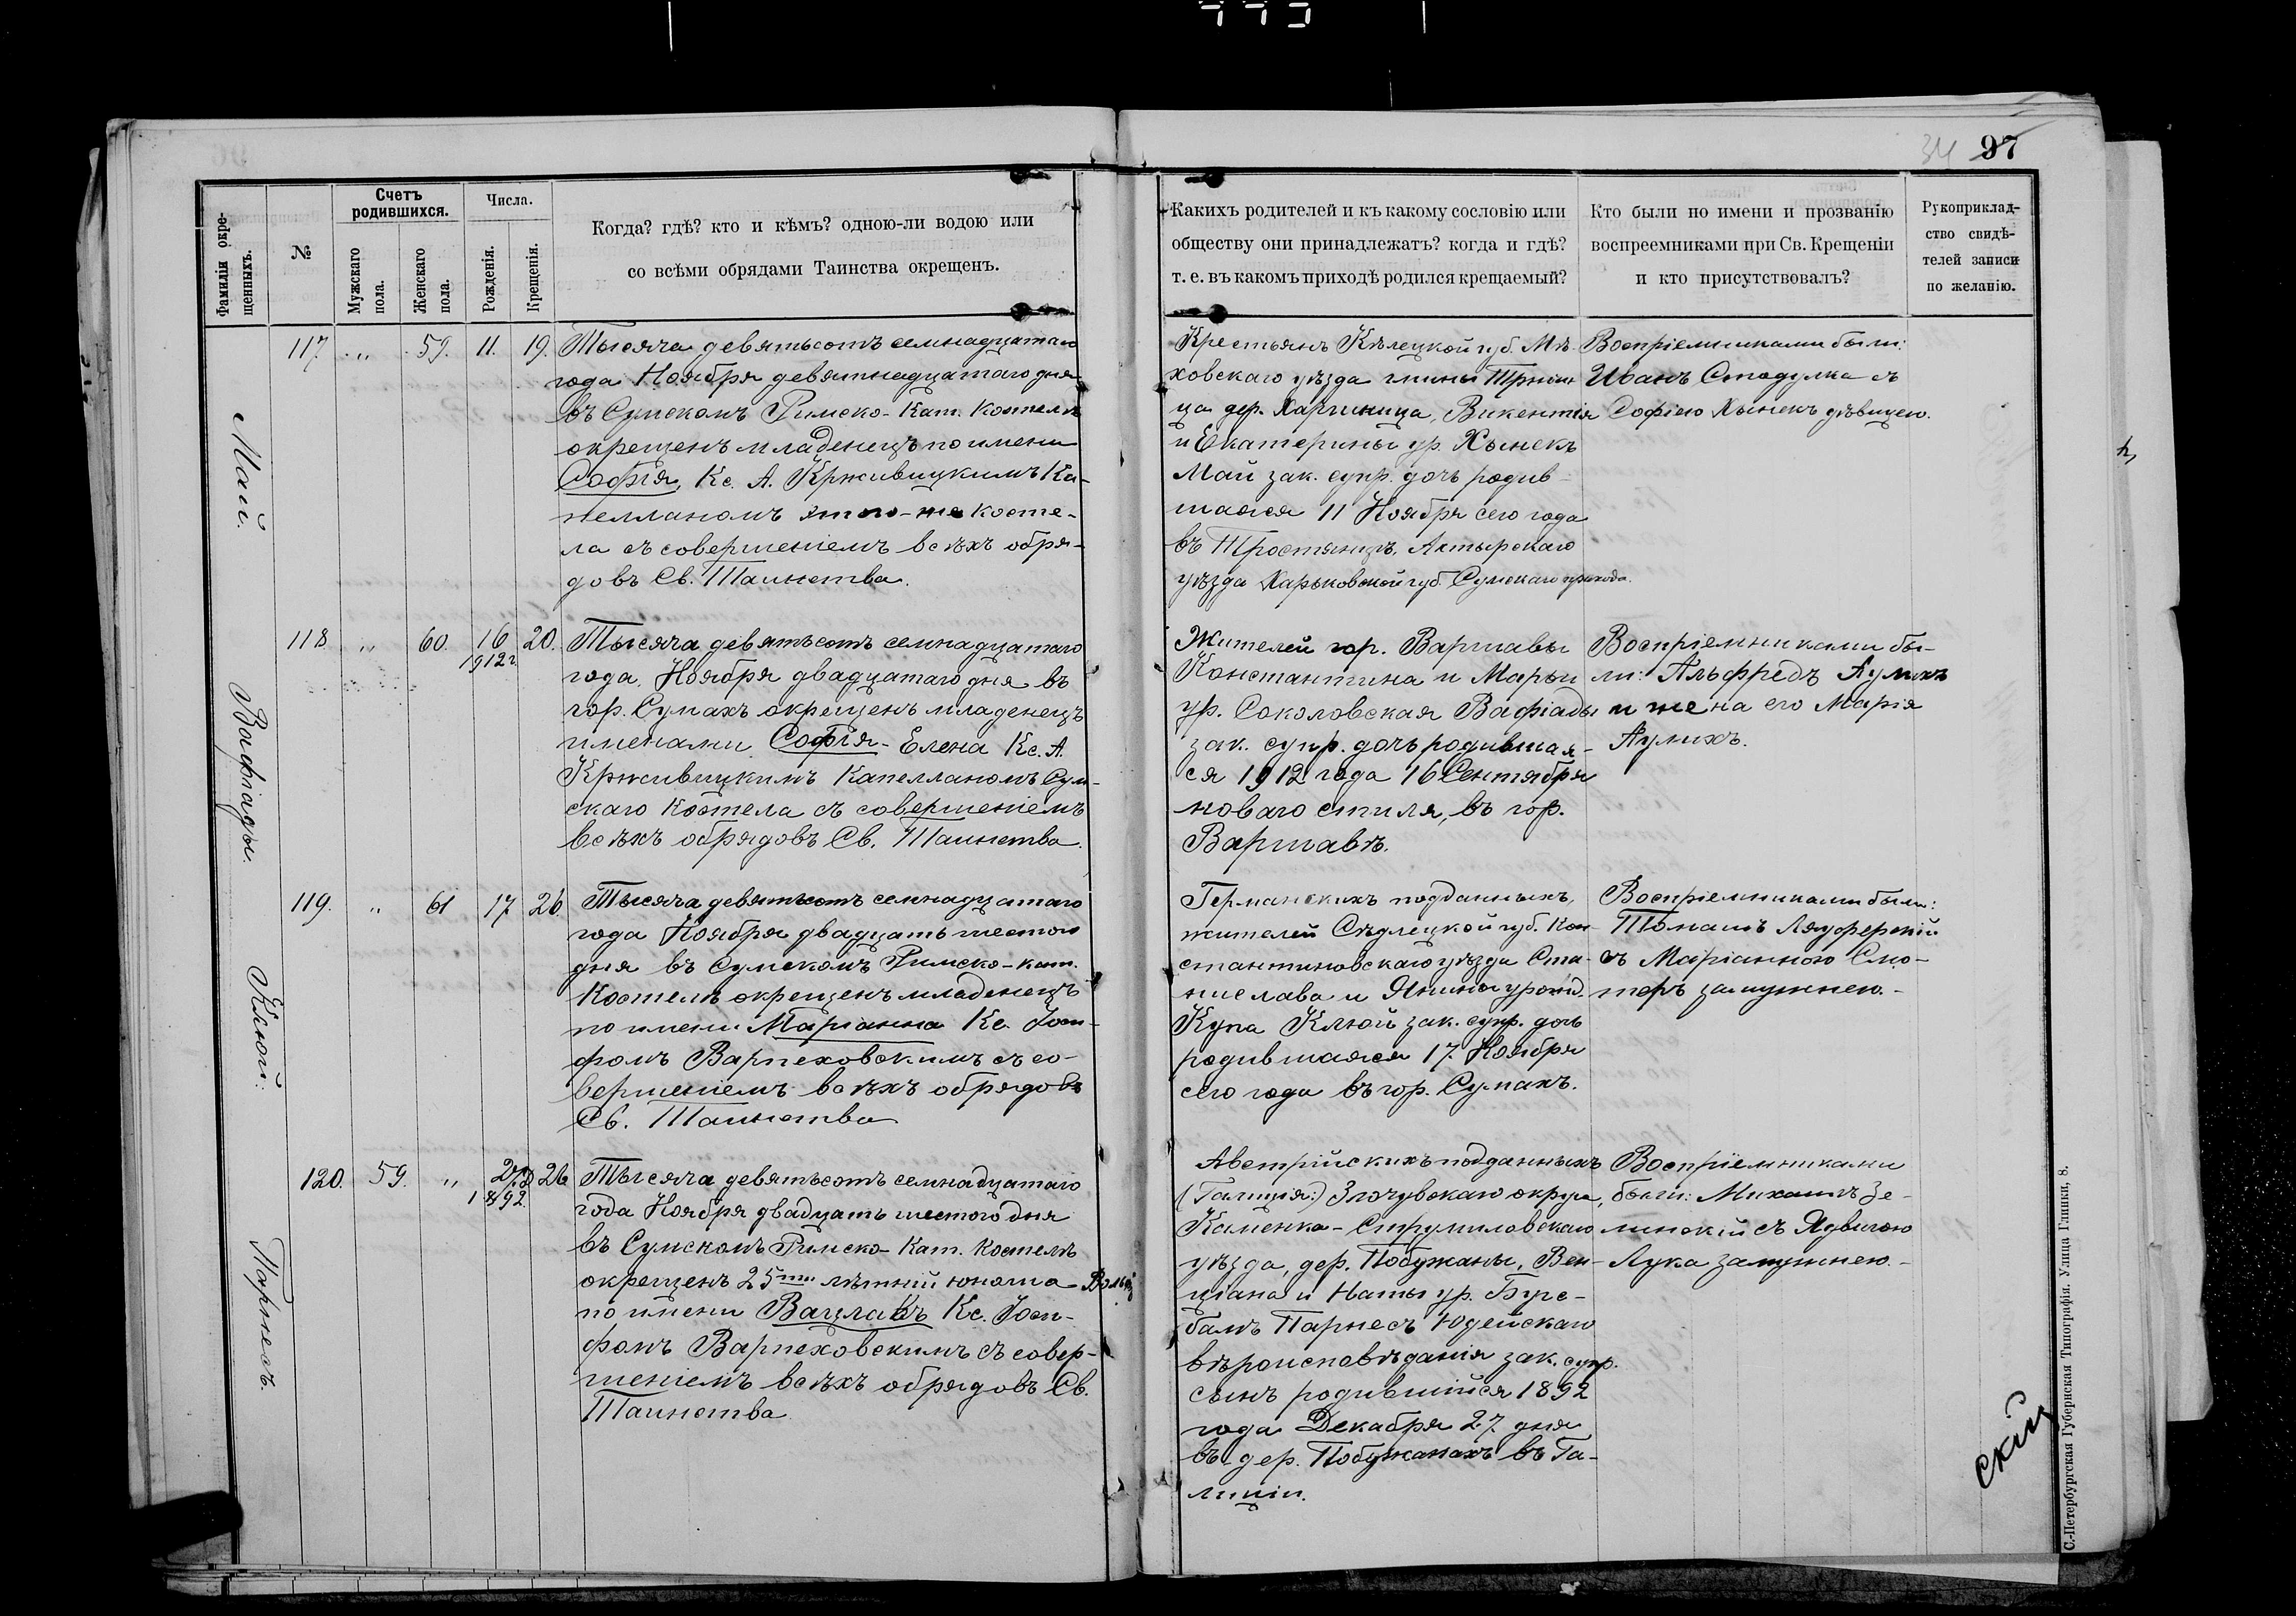 34 97
Фамиліи окре-
щенныхъ.
№
Счетъ
родившихся.
Мужскаго
пола.
Женскаго
пола.
Числа.
Рожденія.
Крещенія.
Когда? гдѣ? кто и кѣмъ? одною-ли водою или
со всѣми обрядами Таинства окрещенъ.
Какихъ родителей и къ какому сословію или
обществу они принадлежатъ? когда и гдѣ?
т. е. въ какомъ приходѣ родился крещаемый?
Кто были по имени и прозванію
воспреемниками при Св. Крещеніи
и кто присутствовалъ?
Рукоприклад-
ство свидѣ-
телей записи
по желанію.
Май.
117. „ 59. 11. 19.
Тысяча девятьсотъ семнадцатаго
года Ноября девятнадцатаго дня
въ Сумскомъ Римско-Кат. Костелѣ
окрещенъ младенецъ по имени
Софія, Кс. А. Крживицкимъ Ка-
пелланомъ этого-же косте-
ла съ совершеніемъ всѣхъ обря-
довъ Св. Таинства.
Крестьянъ Кѣлецкой губ. Мѣ-
ховскаго уѣзда гмины
ца дер. Харшница, Викентія
и Екатерины ур. Хынекъ
Май зак. супр. дочь родив-
шаяся 11 Ноября сего года
въ Тростянцѣ, Ахтырскаго
уѣзда Харьковской губ. Сумскаго прихода.
Воспріемниками были:
Иванъ Стодулка съ
Софіею Хынекъ дѣвицею.
Вафіады.
118 „ 60. 16 20.
1912 г
Тысяча девятьсотъ семнадцатаго
года, Ноября двадцатаго дня въ
гор. Сумахъ окрещенъ младенецъ
именами Софія-Елена Кс. А.
Крживицкимъ Капелланомъ Сум-
скаго Костела съ совершеніемъ
всѣхъ обрядовъ Св. Таинства.
Жителей гор. Варшавы
Константина и Марьи
ур. Соколовская Вафіады
зак. супр. дочь родившая-
ся 1912 года 16 Сентября
новаго стиля, въ гор.
Варшавѣ.
Воспріемниками бы-
ли: Альфредъ Аулихъ
и жена его Марія
Аулихъ.
Клюй.
119. „ 61 17 26.
Тысяча девятьсотъ семнадцатаго
года Ноября двадцать шестого
дня въ Сумскомъ Римско-кат.
Костелѣ окрещенъ младенецъ
по имени Маріанна Кс. Іоси-
фомъ Варпеховскимъ съ со-
вершеніемъ всѣхъ обрядовъ
Св. Таинства
Германскихъ подданныхъ,
жителей Сѣдлецкой губ. Кон-
стантиновскаго уѣзда Ста-
нислава и Янины урожд.
Купа Клюй зак. супр. дочь
родившаяся 17. Ноября
сего года въ гор. Сумахъ.
Воспріемниками были:
Томашъ
съ Маріанною Смо-
теръ замужнею.-
Парнесъ.
120. 59. „ 27/XII 26
1892.
Тысяча девятьсотъ семнадцатаго
года Ноября двадцать шестого дня
въ Сумскомъ Римско-Кат. Костелѣ
окрещенъ 25ти лѣтній юноша
по имени Вацлавъ Кс. Іоси-
фомъ Варпеховскимъ съ совер-
шеніемъ всѣхъ обрядовъ Св.
Таинства
Австрійскихъ подданныхъ
(Галиція:) Злочувскаго округа,
Каменка-Струмиловскаго
уѣзда, дер. Побужаны, Вен-
ціана и Наты ур. Бус-
бамъ Парнесъ Юдейскаго
вѣроисповѣданія зак. супр.
сынъ родившійся 1892
года Декабря 27. дня
въ дер. Побужанахъ въ Га-
лиціи.
Воспріемниками
были: Михаилъ Зе-
линскій съ Ядвигою
Лука замужнею.-
скій
С.-Петербургская Губернская Типографія. Улица Глинки, 8.